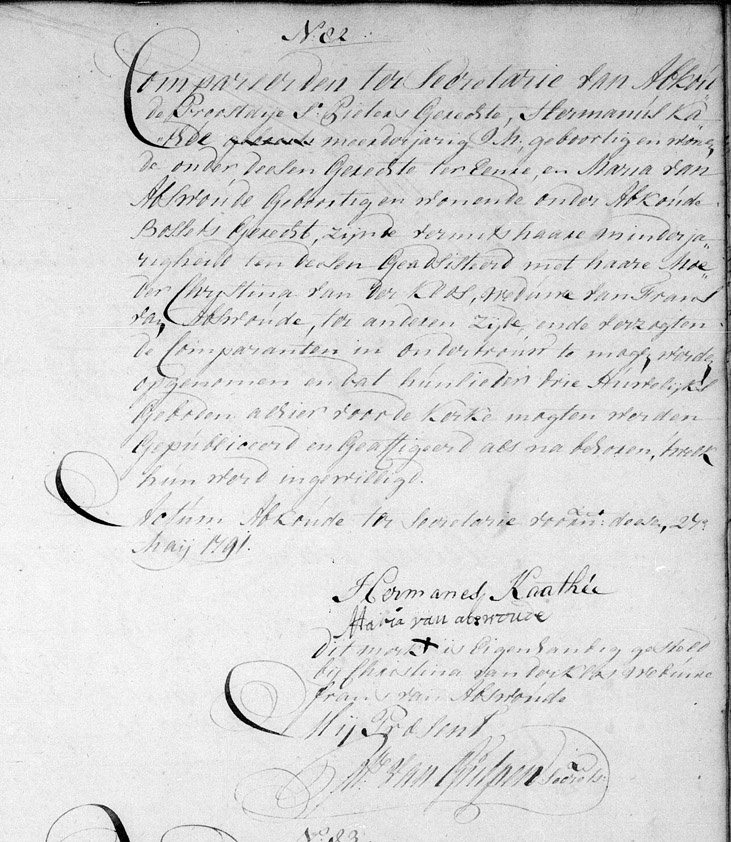 No. 82
Compareerden ter Secretarie van Abkou
de Proostdije St. Pieters Gerechte, Hermanus Ka
thee meerderjarig J.M. geboortig en wonen
de onder deesen Gerechte ter Eenre, en Maria van
Abswoude Geboortig en wonende onder Abkoude
Gerecht, zijnde vermits haare minderja„
righeid ten deesen Geadsisteerd met haare Moe„
der Christina van der Klos, weduwe van Frans
van Abswoude, ter anderen zijde, ende verzogten
de Comparanten in ondertrouw te mogen werden
opgenomen en dat hunlieder drie Huwelijks
Geboden alhier voor de Kerke mogten werden
Gepubliceerd en Geaffigeerd als na behoren, twelk
hun werd ingewilligd.
Actum Abkoude ter Secretarie voorn: deesen 27e
Maij 1791.
Hermanes Kaathée
Maria van abswoude
Dit merk X is Eigenhandig gesteld
bij Christina van der Klos weduwe
frans van Abswoude
Mij Present
van Secrets.
No. 83